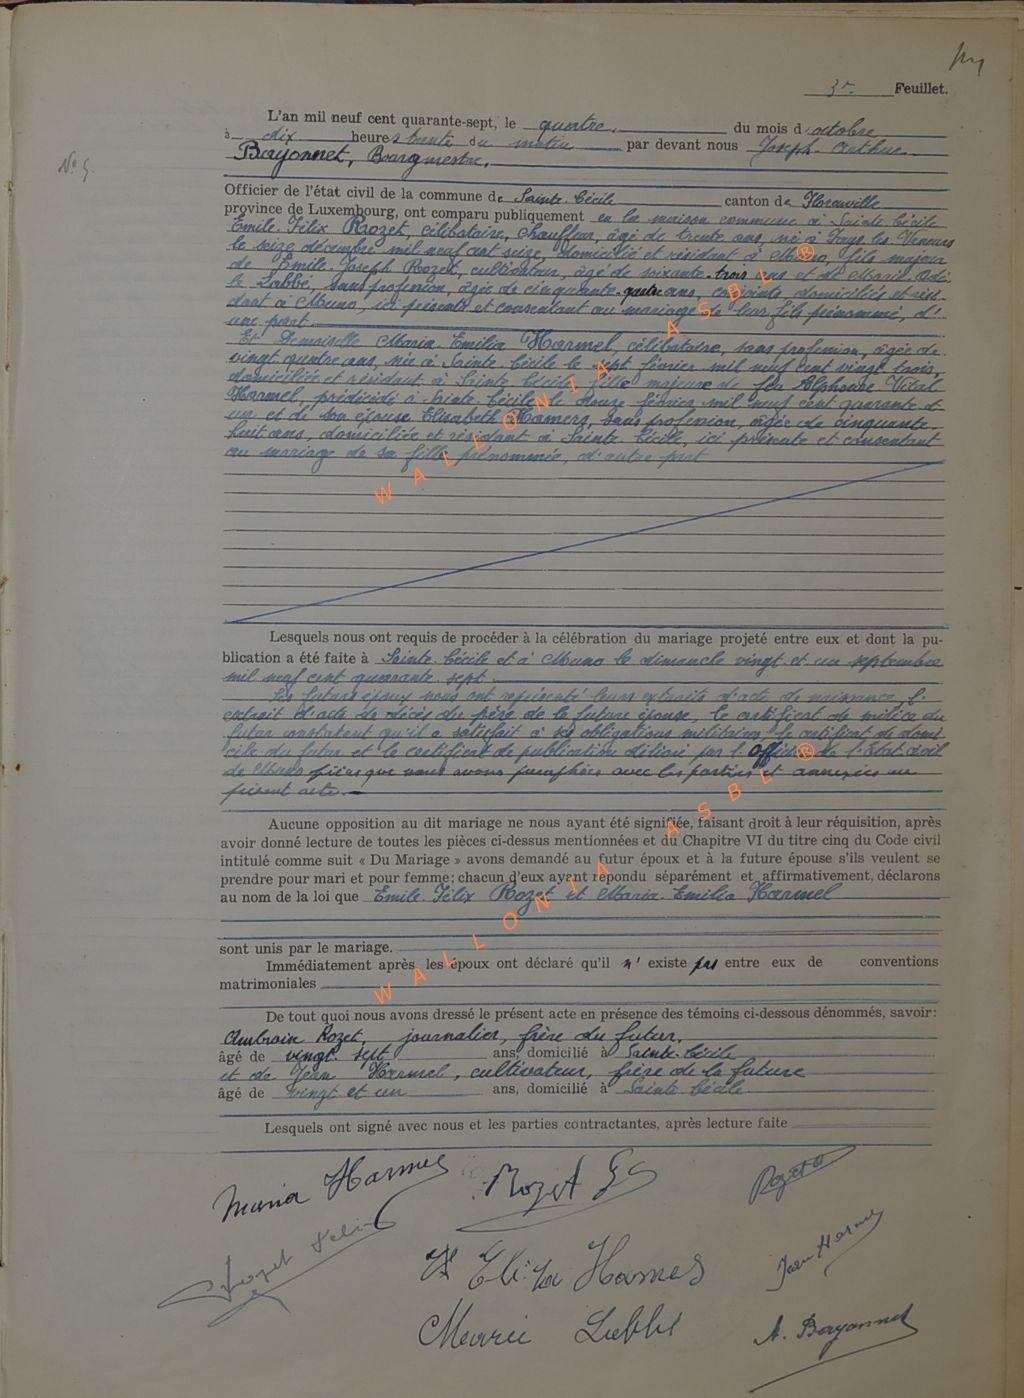 3e Feuillet.
N° 5.
L'an mil neuf cent quarante-sept, le quatre du mois d'octobre
à dix heures trente du matin par devant nous Joseph-Arthur
Bayonnet, Bourgmestre,
Officier de l'état civil de la commune de Sainte-Cécile canton de Florenville
province de Luxembourg, ont comparu publiquement en la maison commune à Sainte Cécile
Emile-Félix Rozet, célibataire, chauffeur, âgé de trente ans, né à Fays-les-Veneurs
le seize décembre mil neuf cent seize, domicilié et résidant à Muno, fils majeur
de Emile-Joseph Rozet, cultivateur, âgé de soixante-trois ans et de Marie-
Labbé, sans profession, âgée de cinquante-quatre ans, conjoints domiciliés et rési-
dant à Muno, ici présents et consentant au mariage de leur fils prénommé, d'
une part.
Et Demoiselle Maria-Emilia Harmel, célibataire, sans profession, âgée de
vingt quatre ans, née à Sainte-Cécile le sept février mil neuf cent vingt trois,
domiciliée et résidant à Sainte Cécile, fille majeure de feu Alphonse Vital
Harmel, prédécédé à Sainte-Cécile le douze février mil neuf cent quarante et
un et de son épouse Elisabeth Hamers, sans profession, âgée de cinquante-
huit ans, domiciliée et résidant à Sainte-Cécile, ici présente et consentant
au mariage de sa fille prénommée, d'autre part
Lesquels nous ont requis de procéder à la célébration du mariage projeté entre eux et dont la pu-
blication a été faite à Sainte-Cécile et à Muno le dimanche vingt et un septembre
mil neuf cent quarante-sept.
Les futurs époux nous ont représenté leurs extraits d'acte de naissance, l'
extrait d'acte de décès du père de la future épouse, le certificat de milice du
futur constatant qu'il a satisfait à ses obligations militaires, le certificat de domi
cile du futur et le certificat de publication délivré par l'Officier de l'Etat-civil
de Muno pièces que nous avons paraphées avec les parties et annexées au
présent acte.
Aucune opposition au dit mariage ne nous ayant été signifiée, faisant droit à leur réquisition, après
avoir donné lecture de toutes les pièces ci-dessus mentionnées et du Chapitre VI du titre cinq du Code civil
intitulé comme suit « Du Mariage » avons demandé au futur époux et à la future épouse s'ils veulent se
prendre pour mari et pour femme; chacun d'eux ayant répondu séparément et affirmativement, déclarons
au nom de la loi que Emile-Félix Rozet et Maria-Emilia Harmel
sont unis par le mariage.
Immédiatement après les époux ont déclaré qu'il n'existe pas entre eux de conventions
matrimoniales
De tout quoi nous avons dressé le présent acte en présence des témoins ci-dessous dénommés, savoir:
Ambroise Rozet, journalier, frère du futur,
âgé de vingt-sept ans, domicilié à Sainte-Cécile
et de Jean Harmel, cultivateur, frère de la future
âgé de vingt et un ans, domicilié à Sainte-Cécile
Lesquels ont signé avec nous et les parties contractantes, après lecture faite
Maria Harmel Rozet Rozet
Rozet Félix Eliza Hamers Jean Harmel
Marie Labbé A. Bayonnet
WALLONIA ASBL®
WALLONIA ASBL®